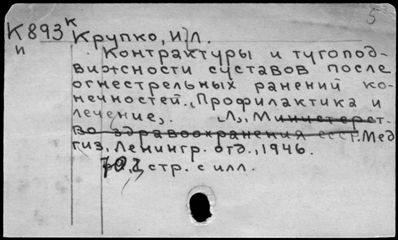 5
К893 к Крупко, И.Л.
и Контрактуры и тугопод-
вижности суставов после
огнестрельных ранений ко-
нечностей., Профилактика и
лечение,. Л., Министерст-
во здравоохранения ссср. Мед
гиз, Ленингр. отд., 1946.
стр. с илл.